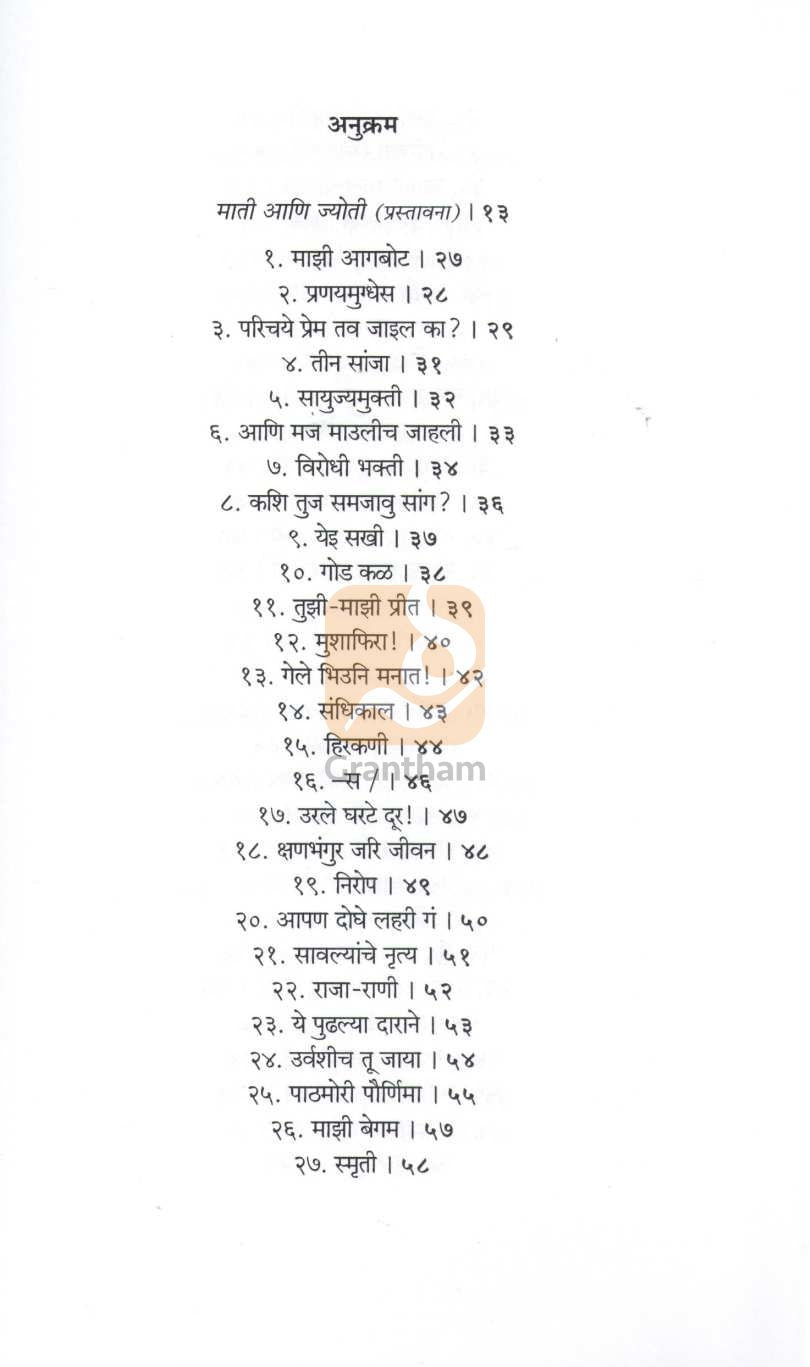 अनुक्रम
माती आणि ज्योती (प्रस्तावना) | १३
१. माझी आगबोट | २७
२. प्रणयमुग्धेस | २८
३. परिचये प्रेम तव जाइल का? | २९
४. तीन सांजा | ३१
५. सायुज्यमुक्ती | ३२
६. आणि मज माउलीच जाहली | ३३
७. विरोधी भक्ती | ३४
८. कशि तुज समजावु सांग? | ३६
९. येइ सखी | ३७
१०. गोड कळ | ३८
११. तुझी-माझी प्रीत | ३९
१२. मुशाफिरा! | ४०
१३. गेले भिउनि मनात! | ४२
१४. संधिकाल | ४३
१५. हिरकणी | ४४
Grantham
१६. –स / | ४६
१७. उरले घरटे दूर! | ४७
१८. क्षणभंगुर जरि जीवन | ४८
१९. निरोप | ४९
२०. आपण दोघे लहरी गं | ५०
२१. सावल्यांचे नृत्य | ५१
२२. राजा-राणी | ५२
२३. ये पुढल्या दाराने | ५३
२४. उर्वशीच तू जाया | ५४
२५. पाठमोरी पौर्णिमा | ५५
२६. माझी बेगम | ५७
२७. स्मृती | ५८